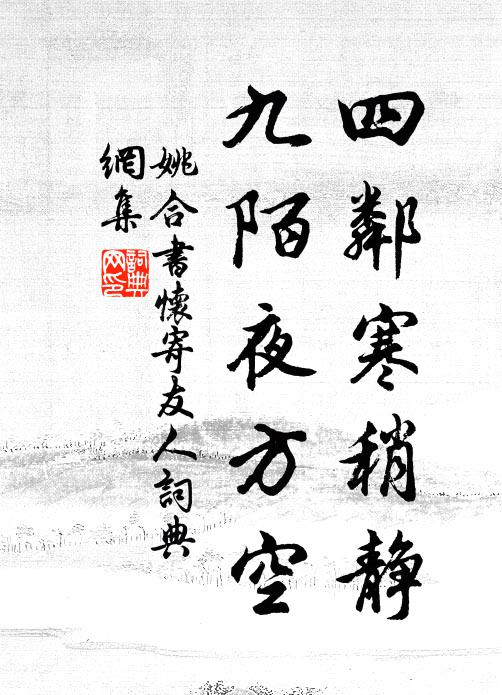 四鄰寒稍靜
九陌夜方空
姚合書懷寄友人詞典
網集
詞典
网印